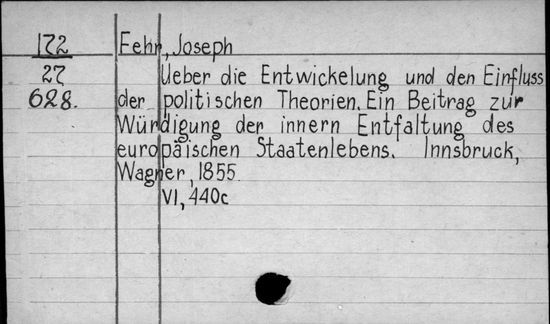 172 Fehr, Joseph
27 Ueber die Entwickelung und den Einfluss
628. der politischen Theorien. Ein Beitrag zur
Würdigung der innern Entfaltung des
europäischen Staatenlebens. Innsbruck,
Wagner, 1855.
VI, 440c